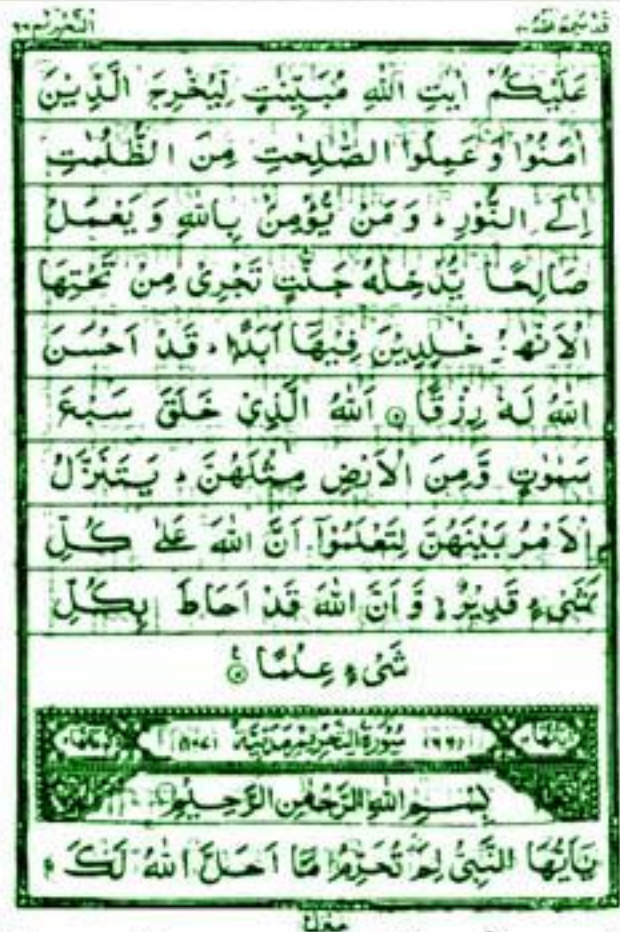 قد سمع الله ٢٨
التحريم ٦٦
عَلَيْكُمْ اٰيٰتِ اللّٰهِ مُبَيِّنٰتٍ لِّيُخْرِجَ الَّذِيْنَ
اٰمَنُوْا وَ عَمِلُوا الصّٰلِحٰتِ مِنَ الظُّلُمٰتِ
اِلَى النُّوْرِ ؕ وَ مَنْ يُّؤْمِنْ بِاللّٰهِ وَ يَعْمَلْ
صَالِحًا يُّدْخِلْهُ جَنّٰتٍ تَجْرِيْ مِنْ تَحْتِهَا
الْاَنْهٰرُ خٰلِدِيْنَ فِيْهَاۤ اَبَدًا ؕ قَدْ اَحْسَنَ
اللّٰهُ لَهٗ رِزْقًا اَللّٰهُ الَّذِيْ خَلَقَ سَبْعَ
سَمٰوٰتٍ وَّ مِنَ الْاَرْضِ مِثْلَهُنَّ ؕ يَتَنَزَّلُ
الْاَمْرُ بَيْنَهُنَّ لِتَعْلَمُوْۤا اَنَّ اللّٰهَ عَلٰى كُلِّ
شَيْءٍ قَدِيْرٌ وَّ اَنَّ اللّٰهَ قَدْ اَحَاطَ بِكُلِّ
شَيْءٍ عِلْمًا
(٦٦) سُوْرَةُ التَّحْرِيْمِ مَدَنِيَّةٌ (١٠٧)
بِسْمِ اللّٰهِ الرَّحْمٰنِ الرَّحِيْمِ
يٰۤاَيُّهَا النَّبِيُّ لِمَ تُحَرِّمُ مَاۤ اَحَلَّ اللّٰهُ لَكَ ۚ